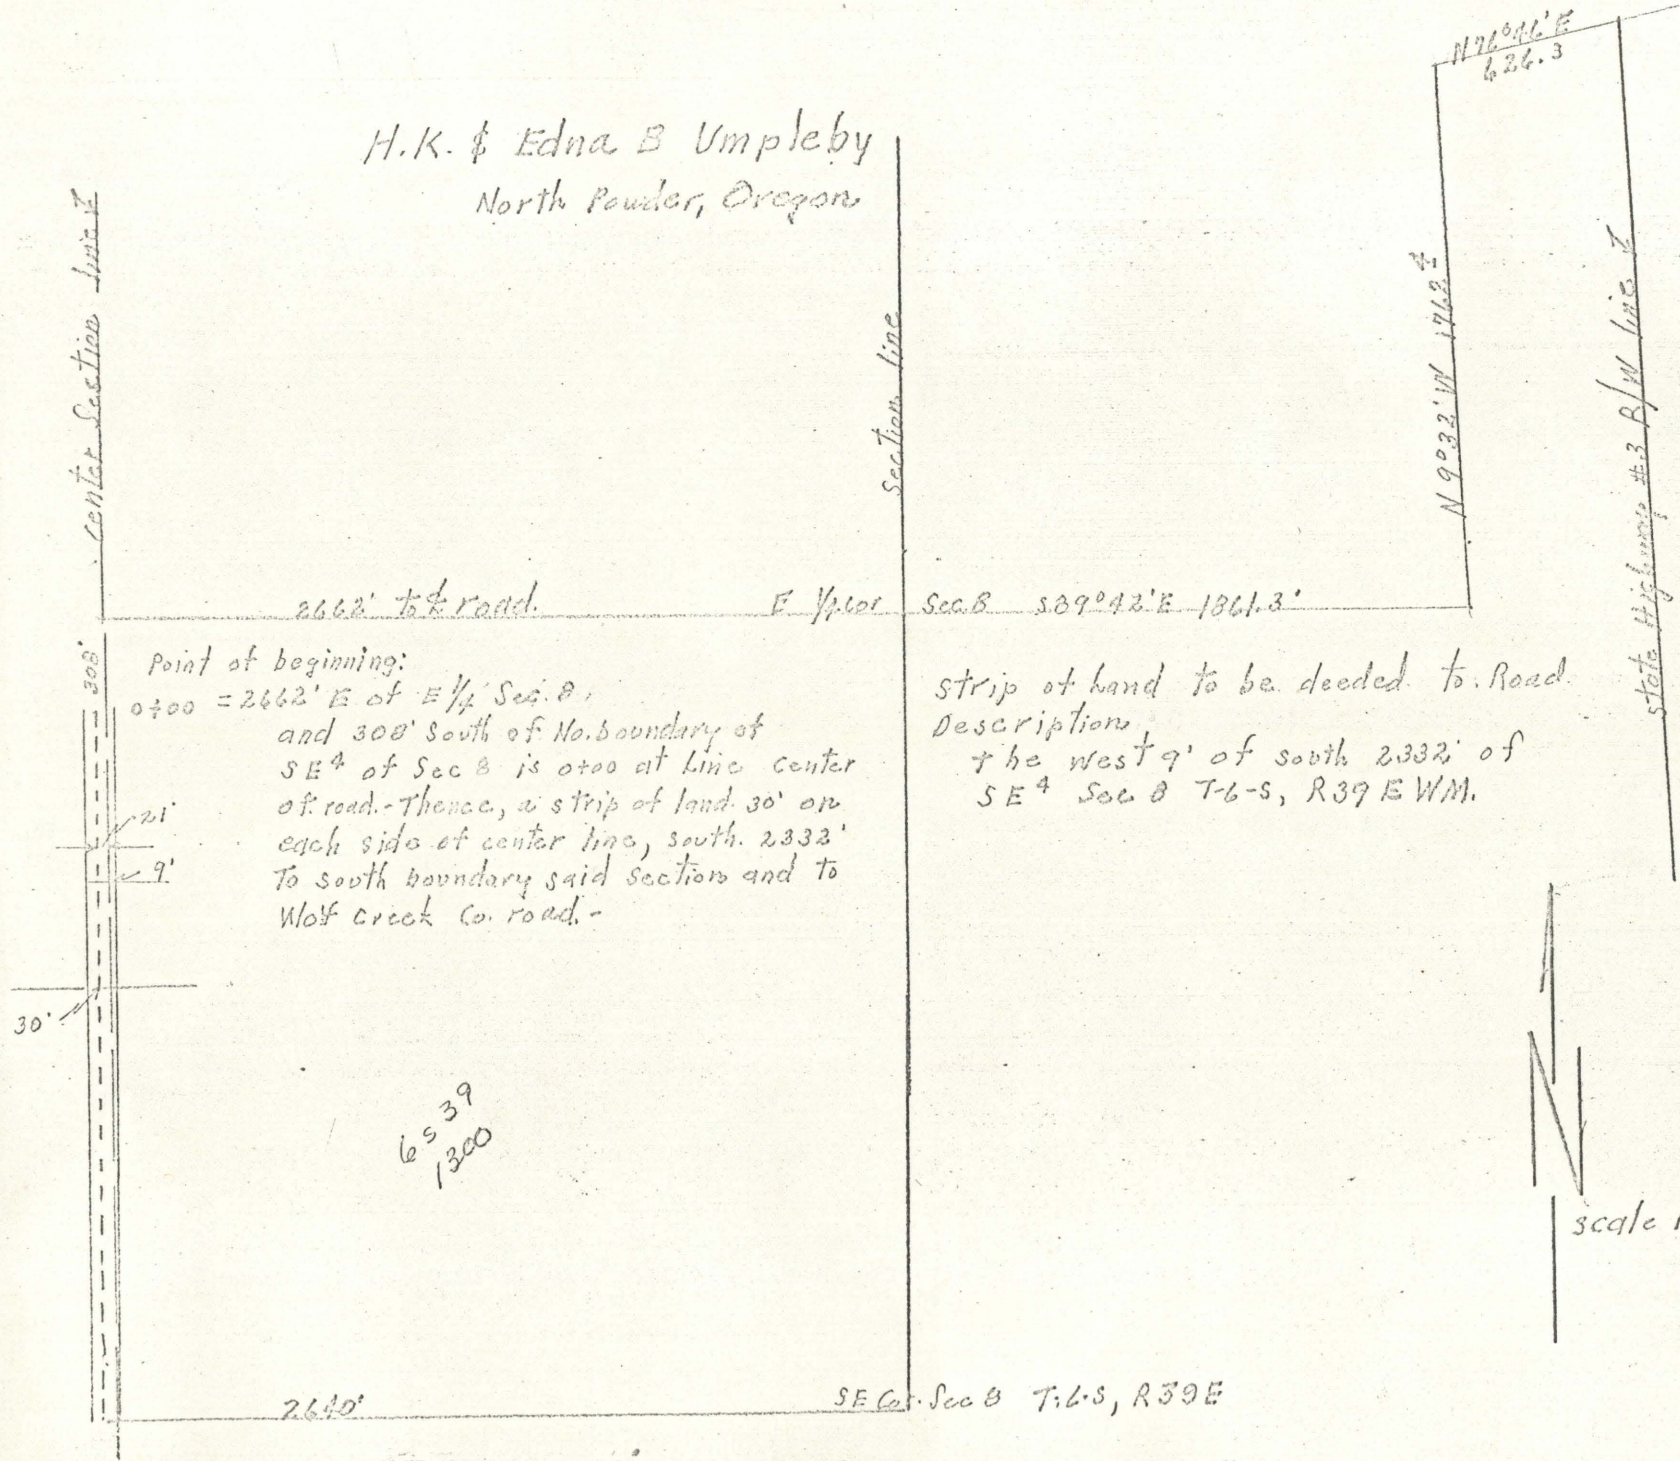 N76°46'E
626.3
H.K. & Edna B Umpleby
North Powder, Oregon
center Section line
Section line
N 9°32' W 1762
State Highway #3 R/W line
2662' to ℄ road.
E 1/4 cor Sec. 8 S89°42'E 1861.3'
308'
Point of beginning:
0+00 = 2662' E of E 1/4 Sec. 8,
and 308' South of No. boundary of
SE 4 of Sec 8 is 0+00 at Line center
of road.- Thence, a strip of land 30' on
each side of center line, south. 2332'
To south boundary said Section and to
Wolf Creek Co. road.-
Strip of Land to be deeded to Road.
Description
The West 9' of South 2332' of
SE 4 Sec 8 T-6-S, R39 E WM.
21'
9'
30'
6 S 39
1300
N
scale
2640'
SE Cor. Sec 8 T.6.S, R39E